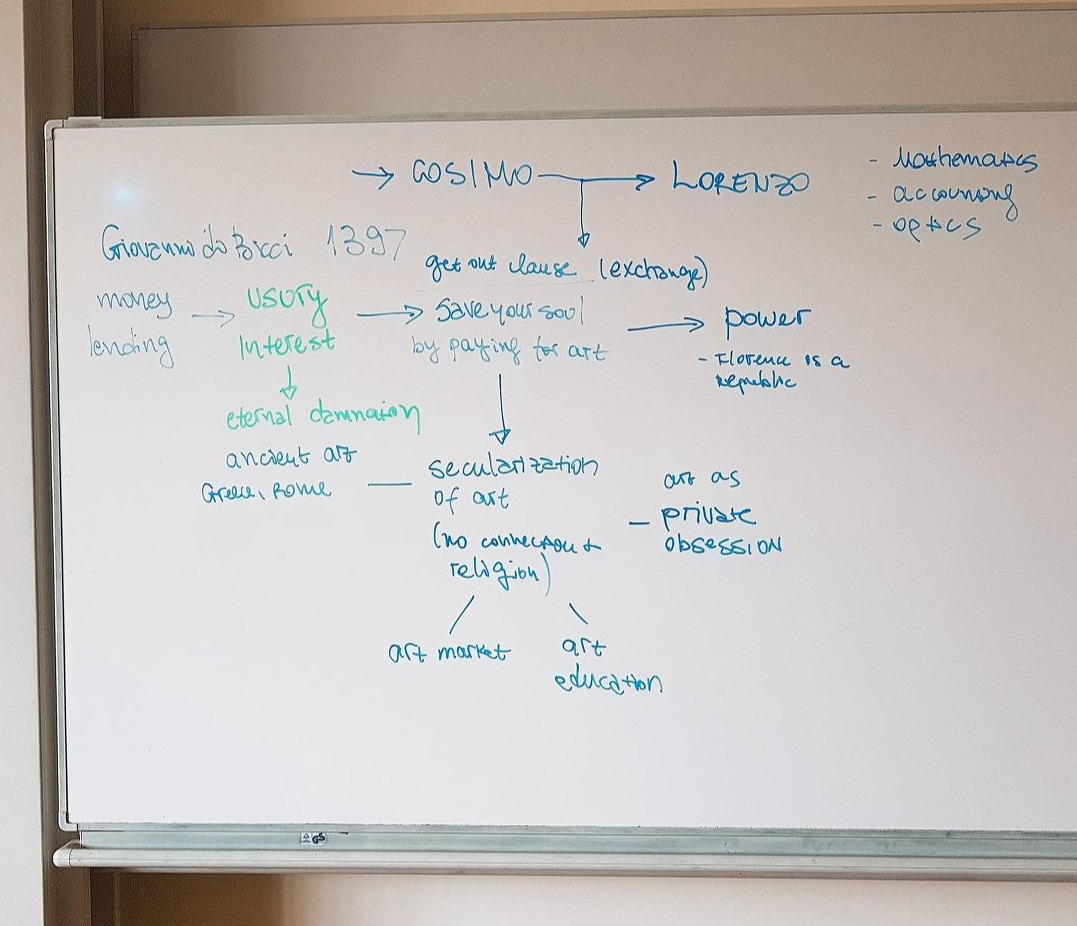 → COSIMO → LORENZO
- Mathematics
- accounting
- optics
Giovanni di Bicci 1397
get out clause (exchange)
money lending → usury Interest → save your soul by paying for art → power
- Florence is a republic
↓
eternal damnation
ancient art
Greece, Rome — secularization of art
(no connection t religion)
— art as private obsession
art market
art education